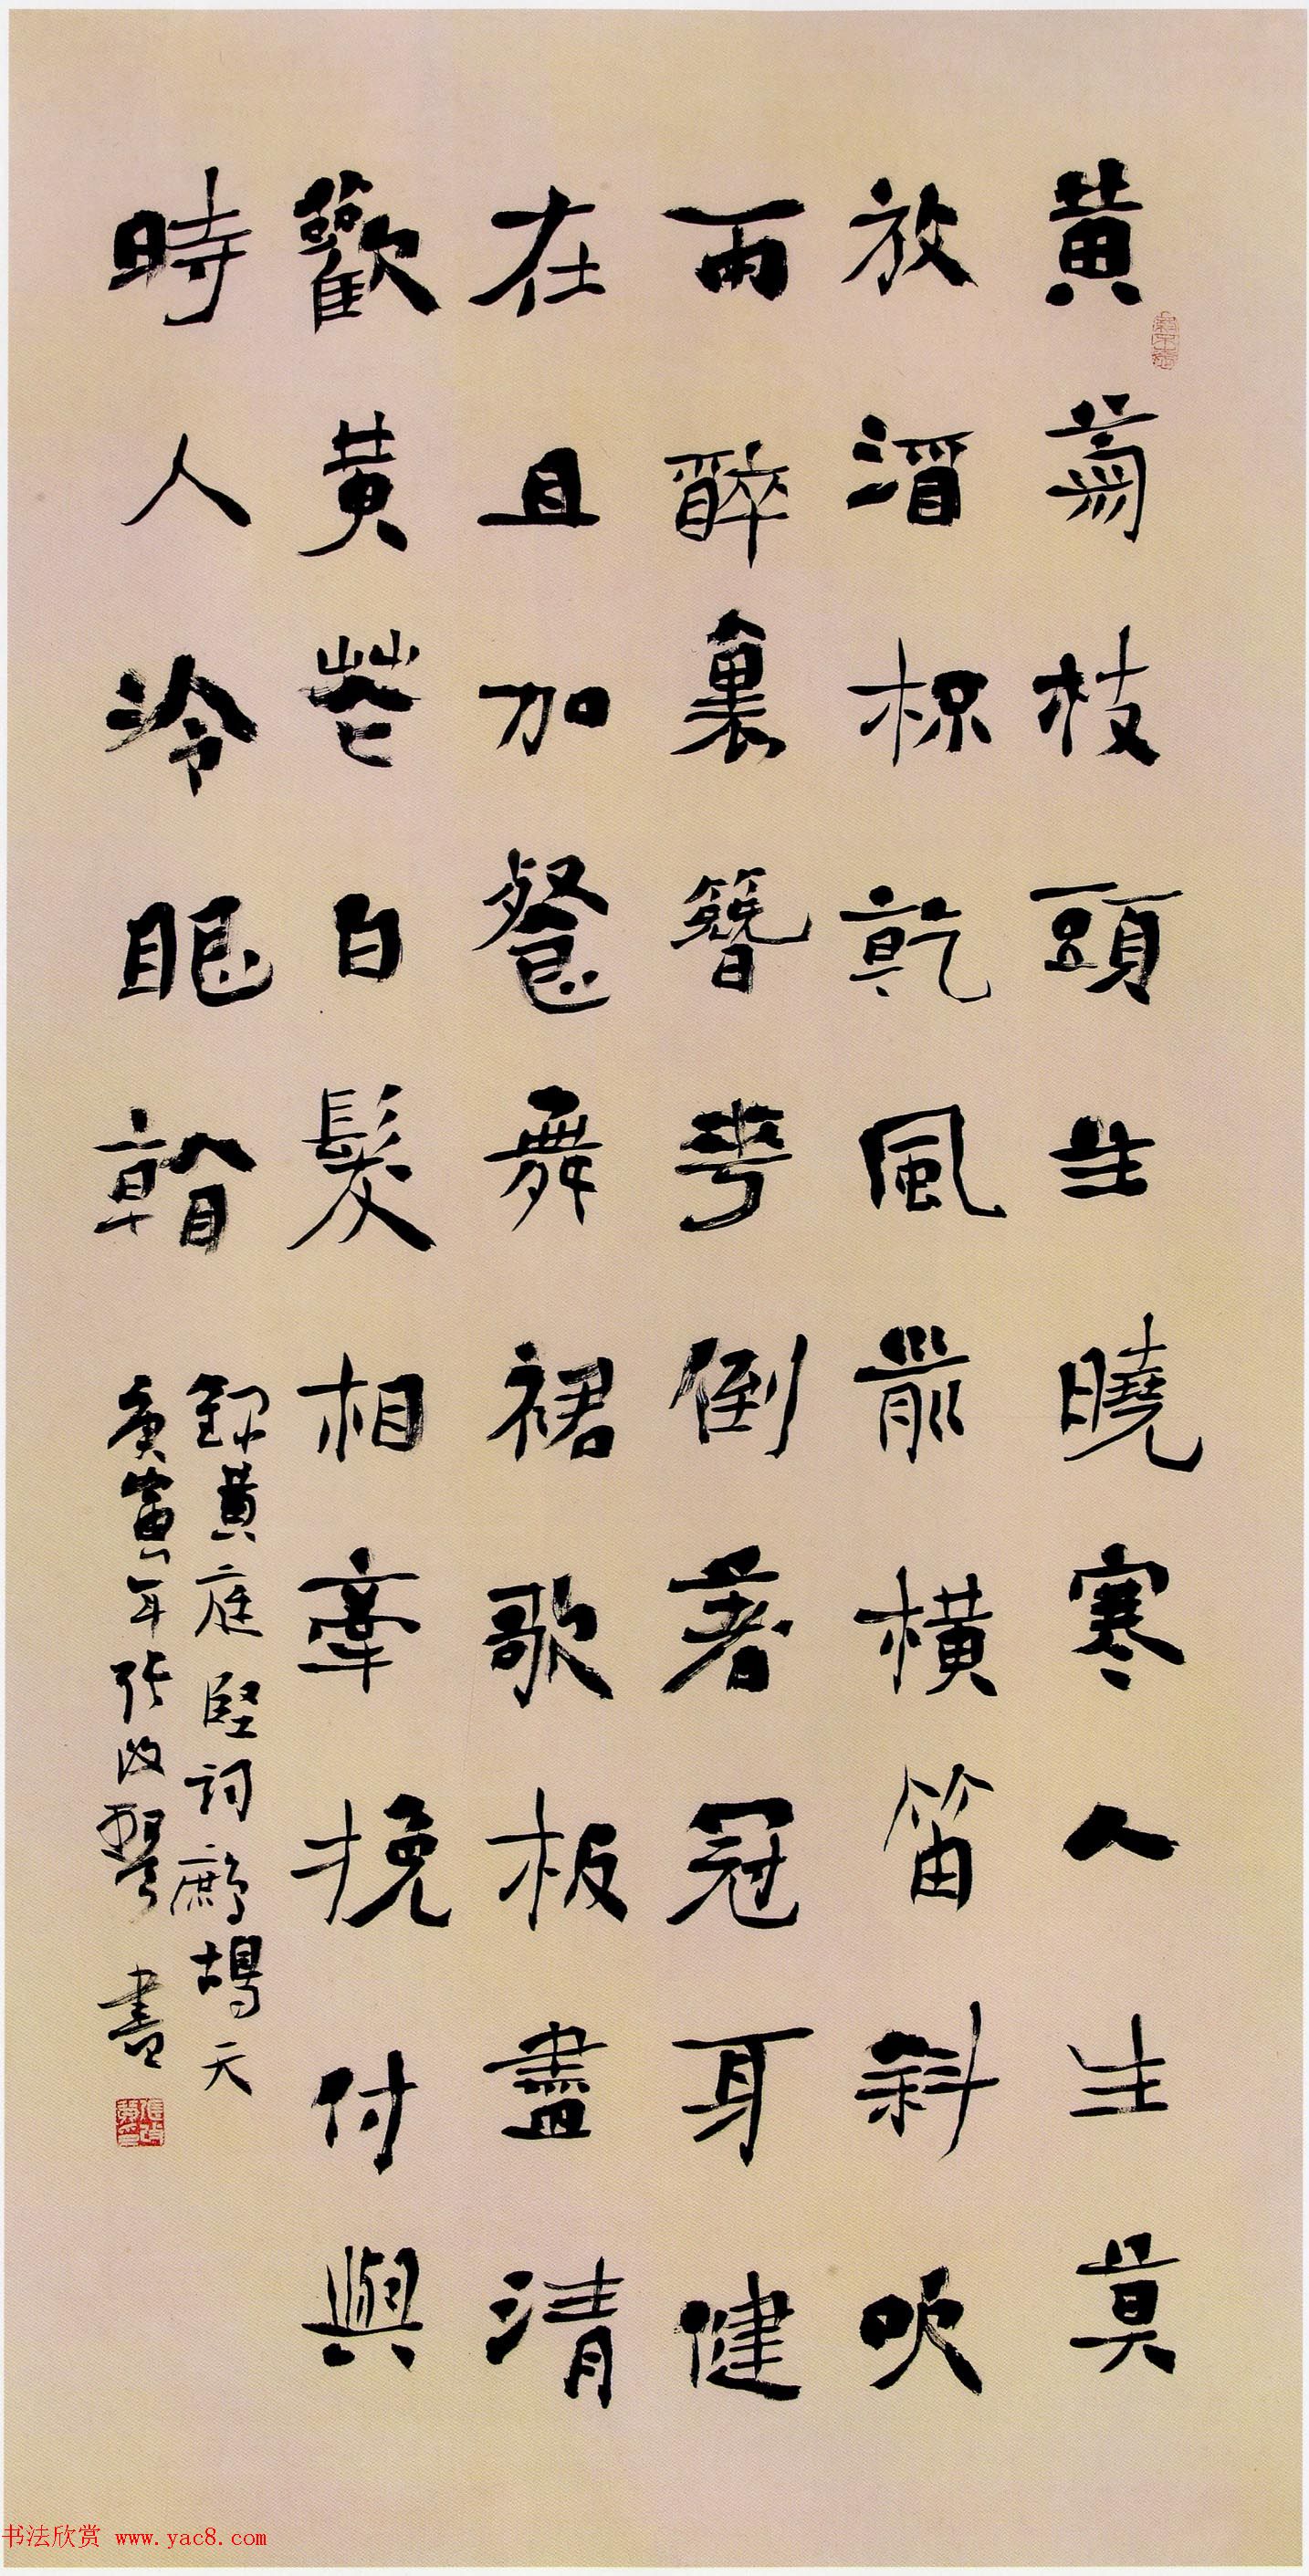 黄菊枝頭生曉寒人生莫
放酒杯乾風前橫笛斜吹
雨醉裏簪花倒著冠身健
在且加餐舞裙歌板盡清
歡黄花白髮相牽挽付與
時人冷眼看
録黄庭堅詞鷓鴣天
庚寅年張改琴書
书法欣赏 www.yac8.com